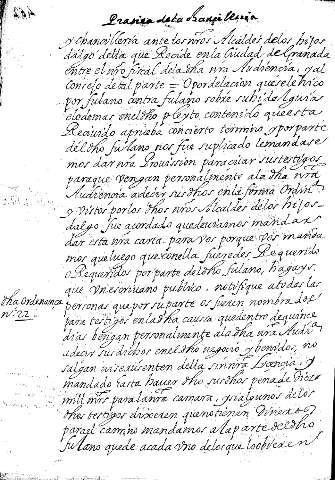 Practica de la Chancilleria
y chancilleria ante los nros Alcaldes de los hijos
dalgo della que Reside en la Ciudad de Granada
entre el nro fiscal de la dha nra Audiencia, y al
Consejo de tal parte = Vpor delacion que se le hiço
por fulano contra fulano sobre
e lo demas en el dho pleyto contenido que esta
Recivido aprueba con cierto termino, y por parte
del dho fulano nos fue suplicado le mandase
mos dar nra Provission para citar sus testigos
para que vengan personalmente a la dha nra
Audiencia a decir sus dhos en la forma Ordina
y vistos por los dhos nros Alcaldes de los hijos
dalgo fue acordado que deviamos mandar
dar esta nra carta para vos por que vos manda
mos que luego que con ella fueredes Requerido
o Requeridos por parte del dho fulano, hagays
que Vn escrivano publico, notifique a todas las
personas que por su parte os fueren nombrados
para testigos en la dha caussa que dentro de quince
dias vengan personalmente a la dha nra Audia
a decir sus dichos en el dho negocio y venidos, no
salgan ni se ausenten della sin nra licencia, y
mandado hasta haver dho sus dhos pena de diez
mill mrs para la nra camara, y si algunos de los
dhos testigos dixeren que no tienen dineros
para el camino mandamos a la parte del dho
fulano que de a cada vno de los que lo obieren
dha Ordenança
nº 22.